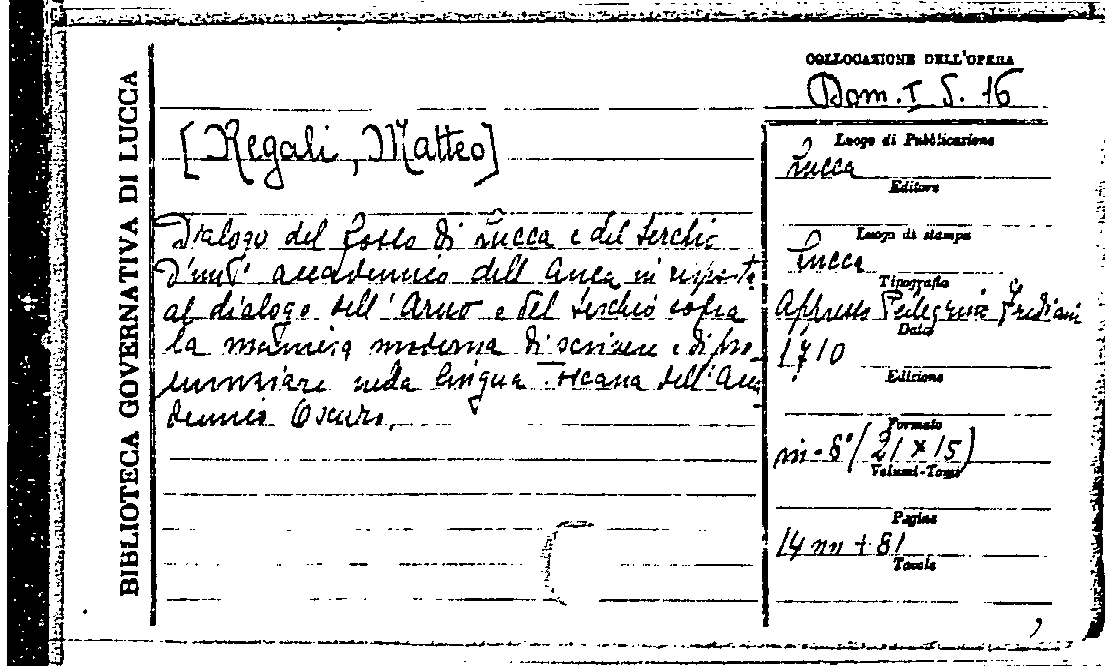 BIBLIOTECA GOVERNATIVA DI LUCCA
COLLOCAZIONE DELL'OPERA
Dom. I S. 16
[Regali, Matteo]
Dialogo del Fosso di Lucca e del Serchio
D'un accademico dell'Anca in risposta
al dialogo dell'Arno e del Serchio sopra
la maniera moderna di scrivere e di pro-
nunziare nella lingua Toscana dell'Acca
demico Oscuro.
Luogo di Pubblicazione
Lucca
Editore
Luogo di stampa
Lucca
Tipografia
Appresso Pellegrino Frediani
Data
1710
Edizione
Formato
in-8° (21 x 15)
Volumi-Tomi
Pagine
14 nn + 81
Tavole